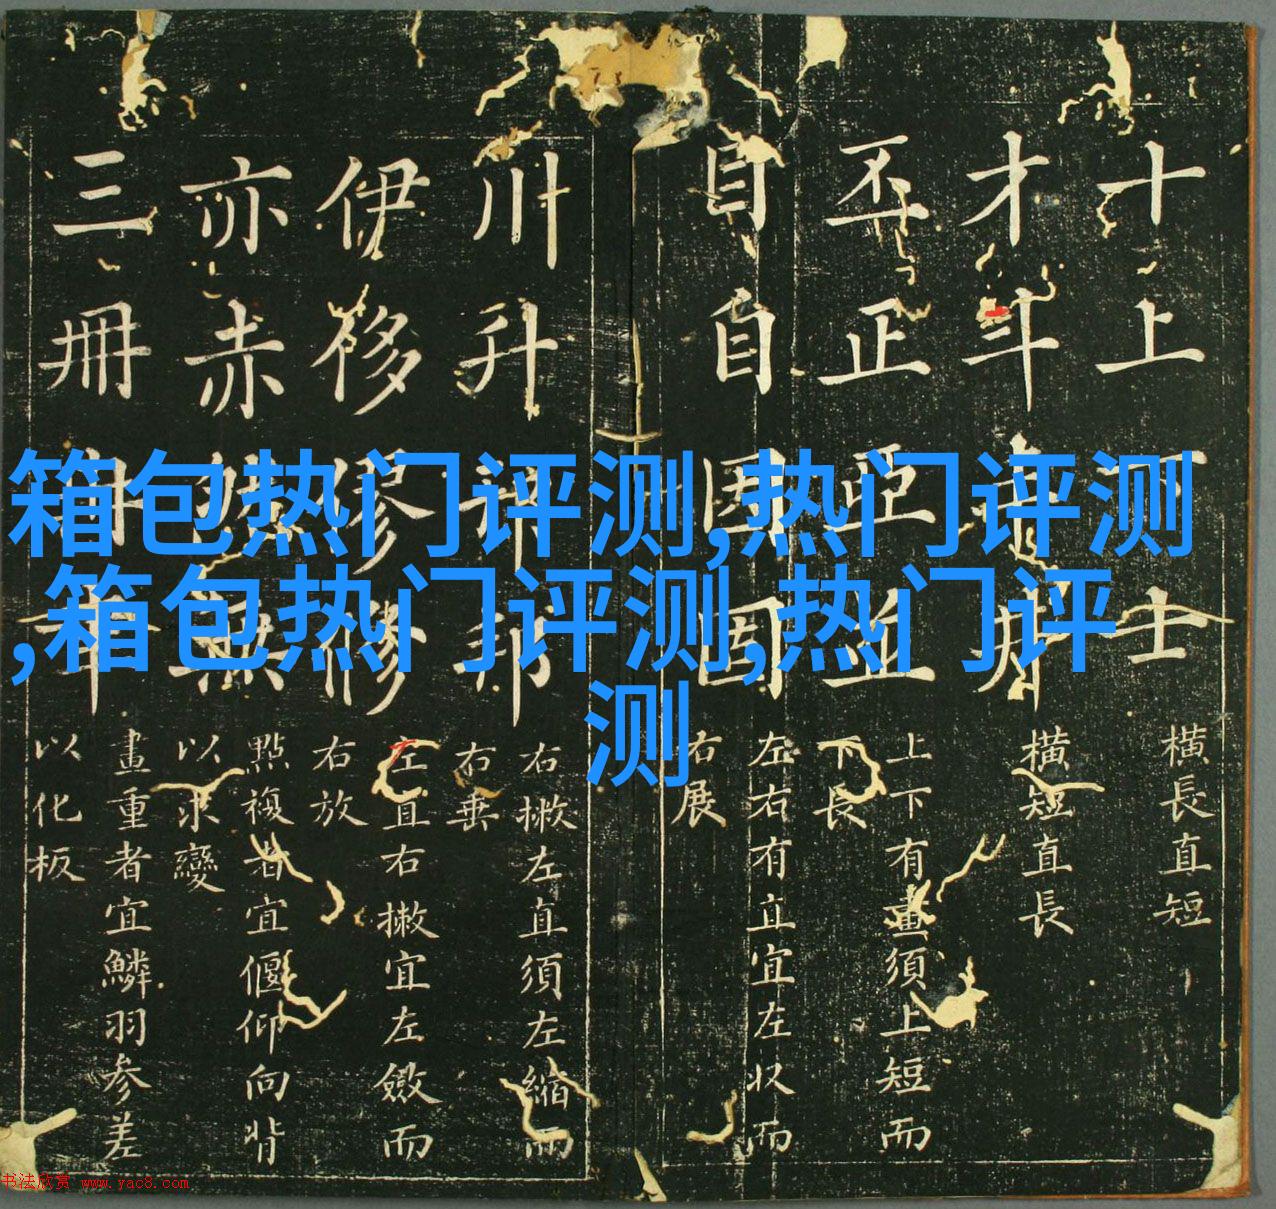 箱包热门评测,热门评测
,箱包热门评测,热门评
测
十上下士
橫長直短
才斗
橫短直長
丕正亞並
上下有畫須上短而
下長
目自因固
左右有直宜左收而
右展
川升
右撇左直須左縮而
右垂
伊侈修
左直右撇宜左斂而
右放
亦赤無
點複者宜偃仰向背
以求變
三冊
畫重者宜鱗羽参差
以化板
书法欣赏 www.yac8.com